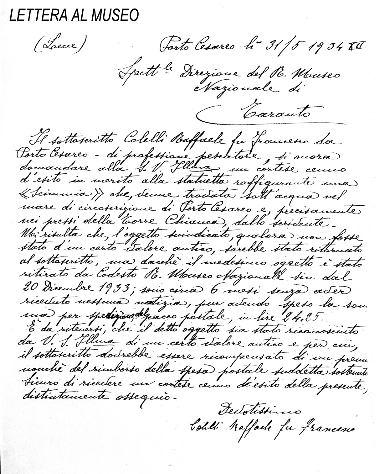 LETTERA AL MUSEO
(Lecce) Porto Cesareo li 31/5 1934 XII
Spett.le Direzione del R. Museo
Nazionale di
Taranto
Il sottoscritto Colelli Raffaele fu Francesco da
Porto Cesareo - di professione pescatore, si onora
domandare alla S. V. Ill.ma un cortese cenno
d'esito in merito alla statuetta raffigurante una
«Scimmia» che, venne trovata sott'acqua nel
mare di circoscrizione di Porto Cesareo e, precisamente
nei pressi della Torre Chianca, dallo scrivente.
Mi risulta che, l'oggetto suindicato, qualora non fosse
stato d'un certo valore antico, sarebbe stato ritornato
al sottoscritto, ma dacché il medesimo oggetto è stato
ritirato da Codesto R. Museo Nazionale sin dal
20 Dicembre 1933; sono circa 6 mesi senza aver
ricevuto nessuna notizia, pur avendo speso la som
ma per spedizione pacco postale, in lire 24.25.
È da ritenersi, che il detto oggetto sia stato riconosciuto
da V. S. Ill.ma di un certo valore antico e per cui,
il sottoscritto dovrebbe essere ricompensato di un premio
nonché del rimborso della spesa postale suddetta sostenuta
Sicuro di ricevere un cortese cenno d'esito della presente,
distintamente ossequio.
Devotissimo
Colelli Raffaele fu Francesco